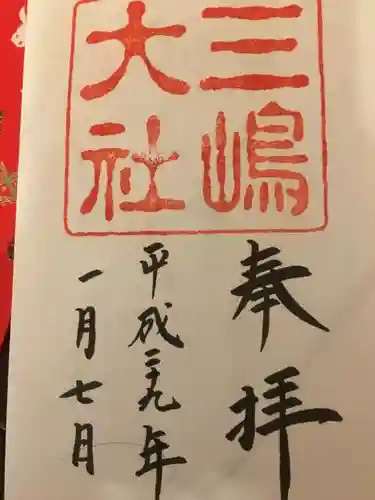 三嶋
大社
奉拝
平成二十九年
一月七日